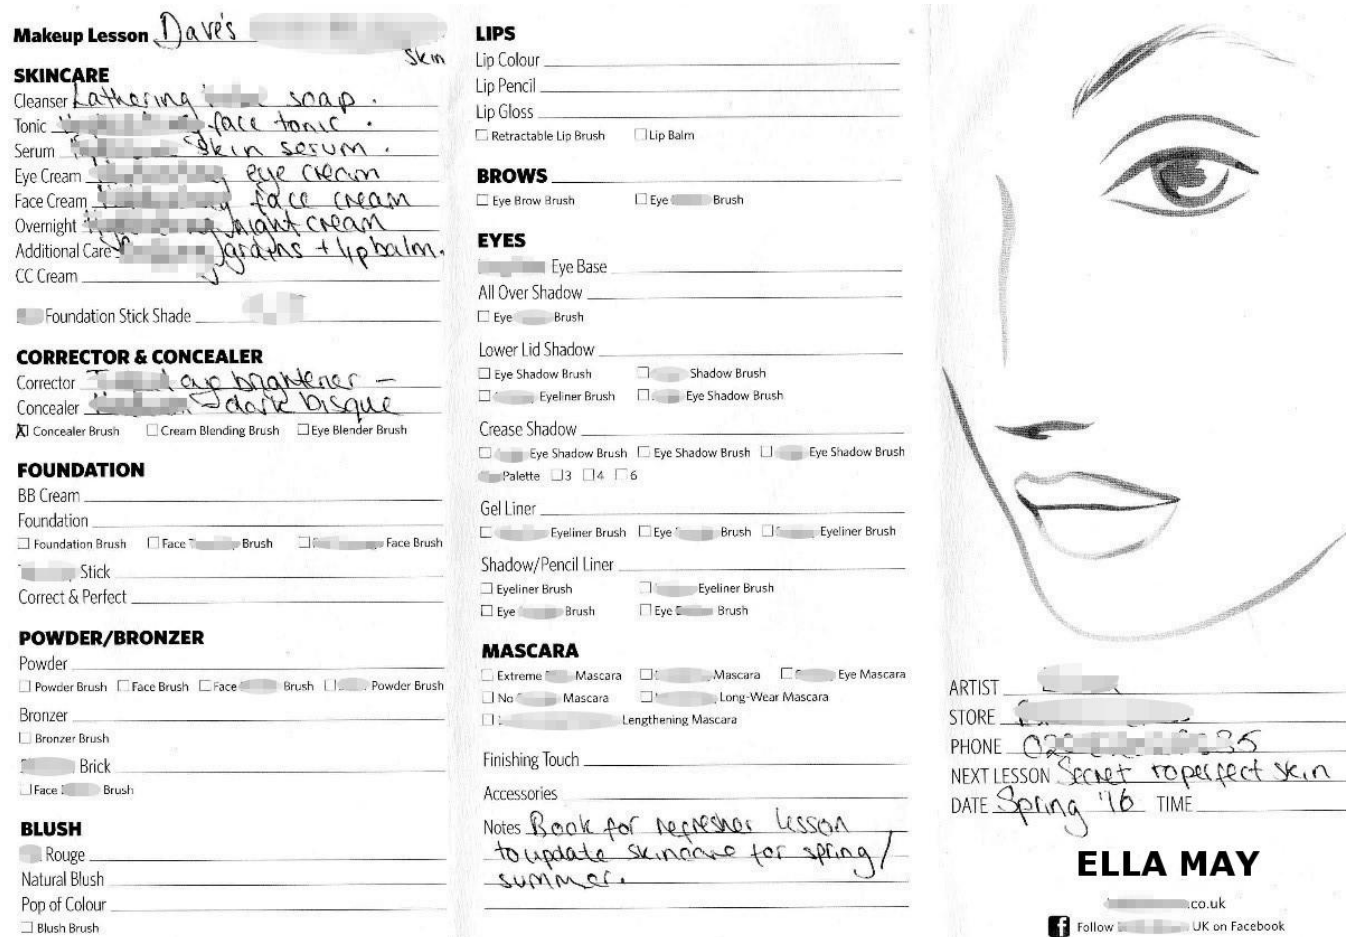 Makeup Lesson Dave's
skin
SKINCARE
Cleanser Lathering soap.
Tonic face tonic.
Serum skin serum.
Eye Cream eye cream
Face Cream face cream
Overnight night cream
Additional Care + lip balm.
CC Cream
Foundation Stick Shade
CORRECTOR & CONCEALER
Corrector eye brightener –
Concealer dark bisque
X Concealer Brush Cream Blending Brush Eye Blender Brush
FOUNDATION
BB Cream
Foundation
Foundation Brush Face Brush Face Brush
Stick
Correct & Perfect
POWDER/BRONZER
Powder
Powder Brush Face Brush Face Brush Powder Brush
Bronzer
Bronzer Brush
Brick
Face Brush
BLUSH
Rouge
Natural Blush
Pop of Colour
Blush Brush
LIPS
Lip Colour
Lip Pencil
Lip Gloss
Retractable Lip Brush Lip Balm
BROWS
Eye Brow Brush Eye Brush
EYES
Eye Base
All Over Shadow
Eye Brush
Lower Lid Shadow
Eye Shadow Brush Shadow Brush
Eyeliner Brush Eye Shadow Brush
Crease Shadow
Eye Shadow Brush Eye Shadow Brush Eye Shadow Brush
Palette 3 4 6
Gel Liner
Eyeliner Brush Eye Brush Eyeliner Brush
Shadow/Pencil Liner
Eyeliner Brush Eyeliner Brush
Eye Brush Eye Brush
MASCARA
Extreme Mascara Mascara Eye Mascara
No Mascara Long-Wear Mascara
Lengthening Mascara
Finishing Touch
Accessories
Notes Book for refresher lesson
to update skincare for spring/
summer.
ARTIST
STORE
PHONE 02 35
NEXT LESSON Secret to perfect skin
DATE Spring '16 TIME
ELLA MAY
.co.uk
Follow UK on Facebook